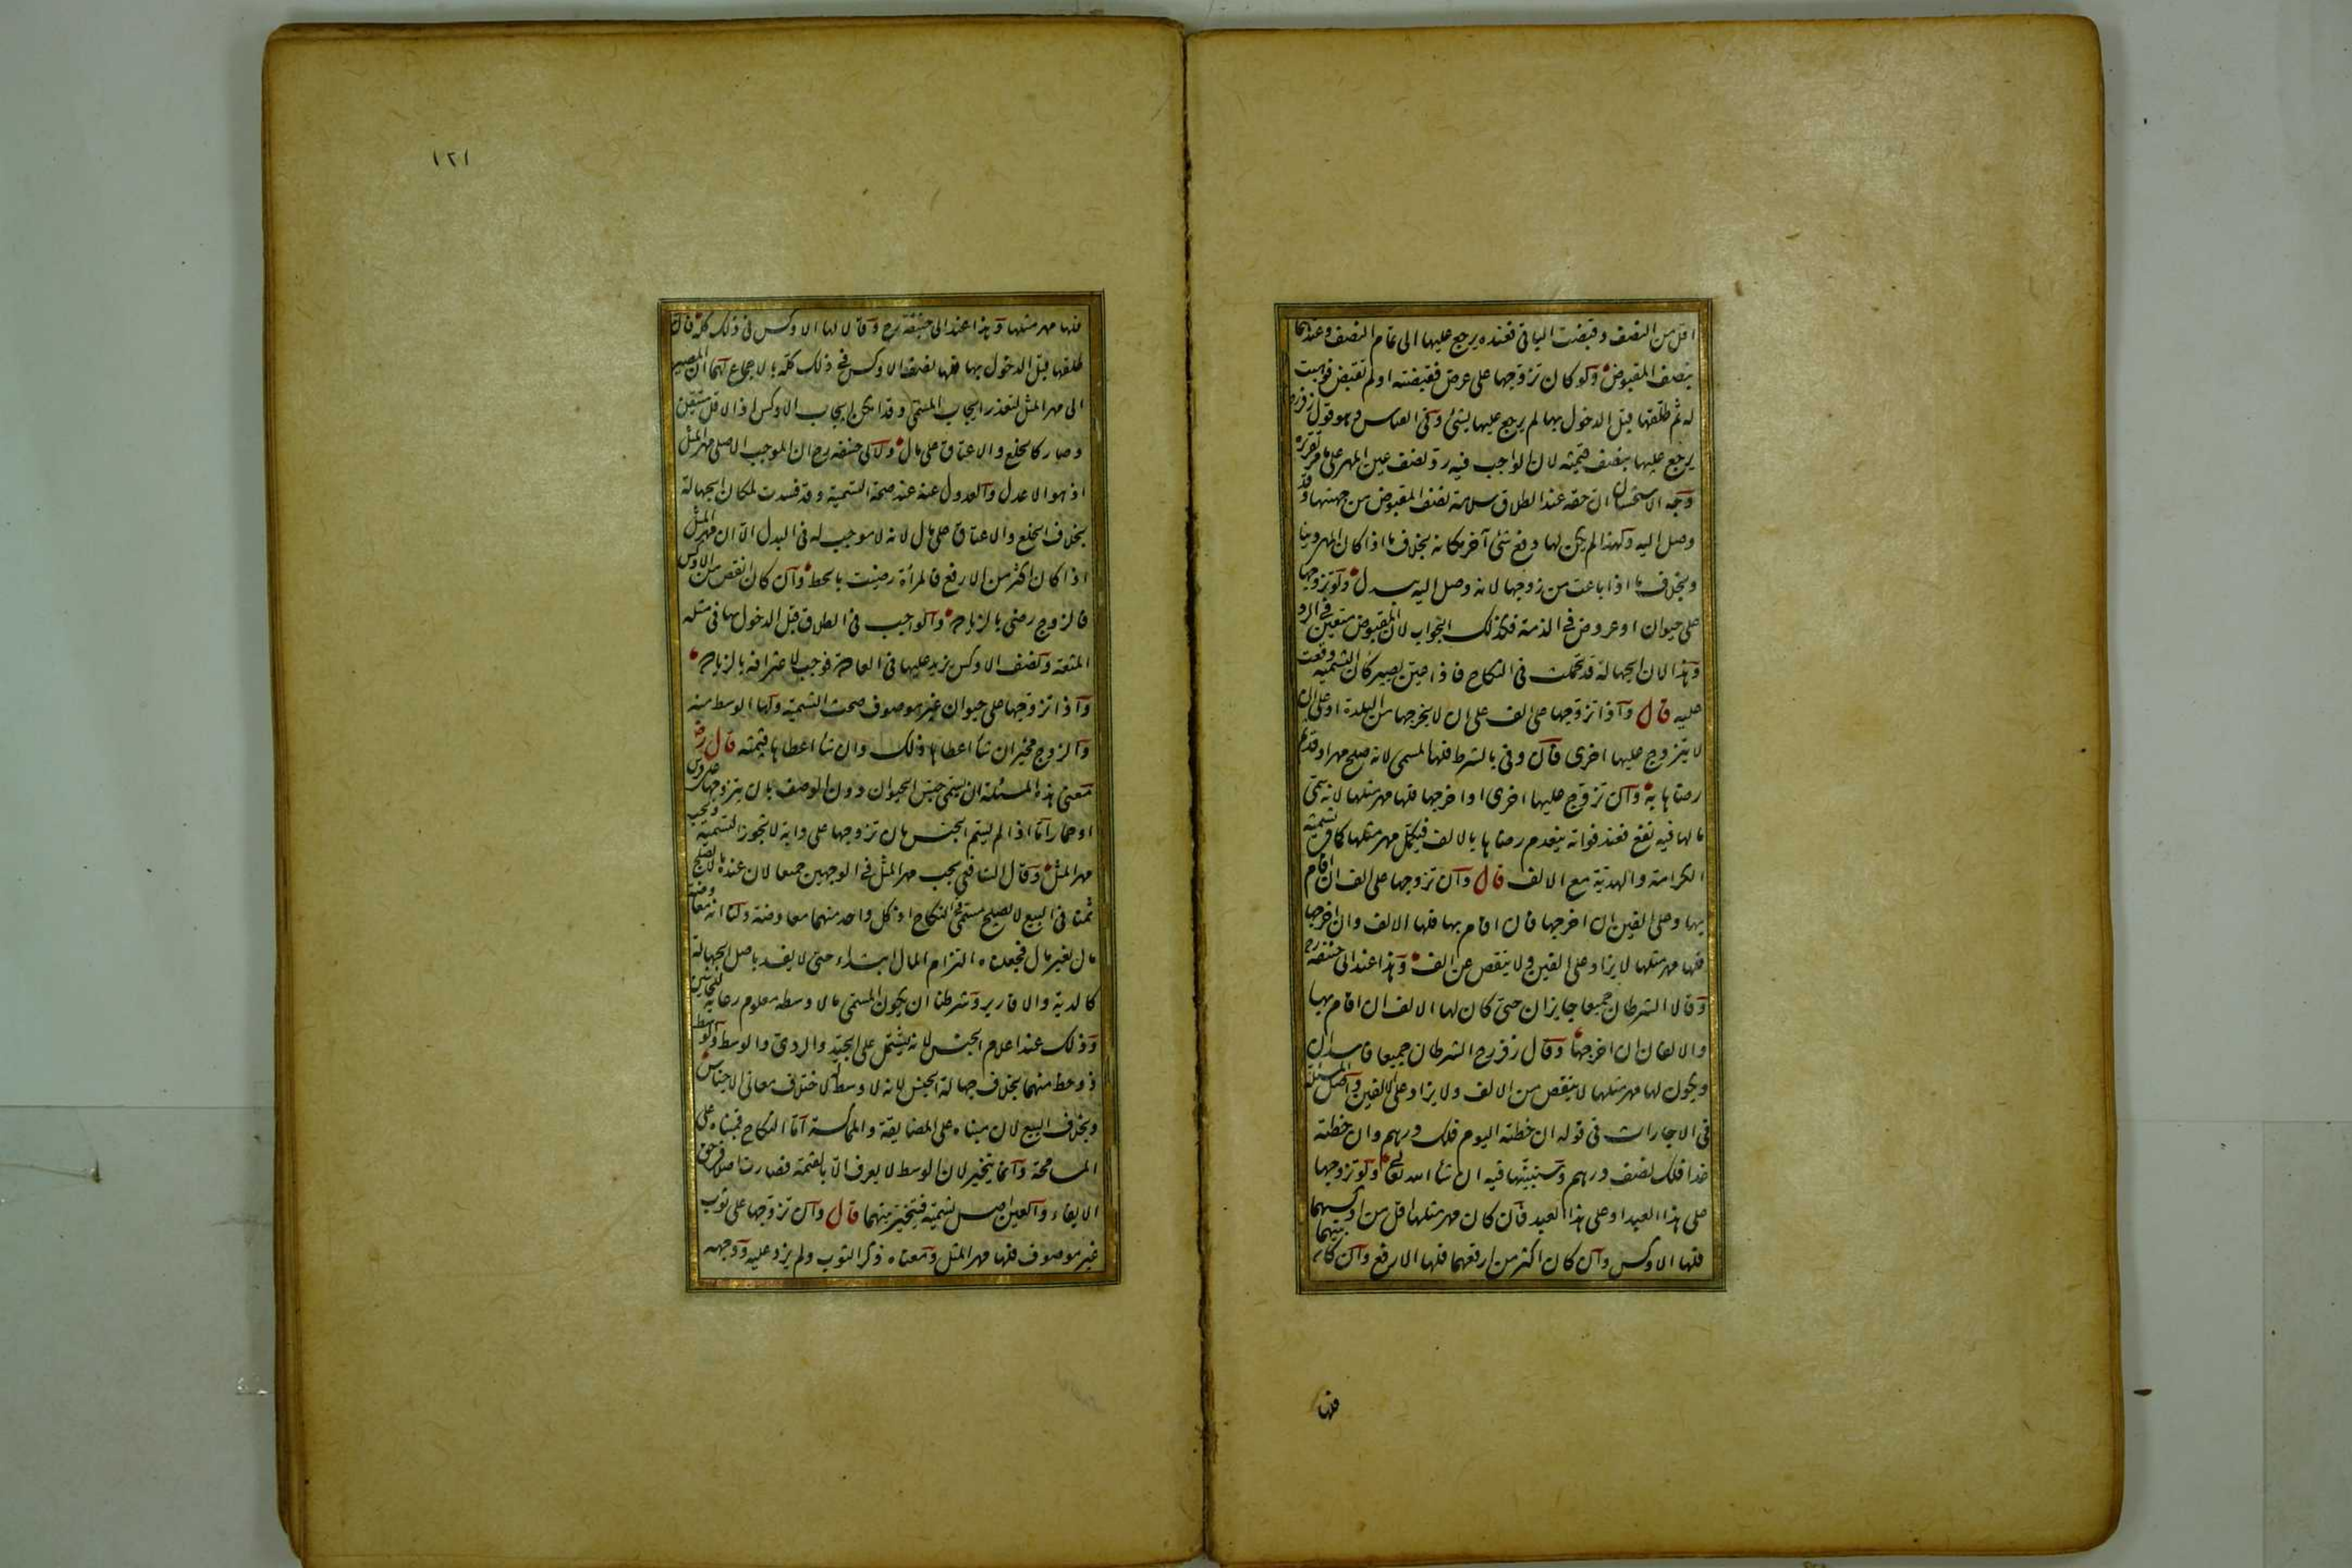 اقل من النصف وقبضت الباقى فعنده يرجع عليها الى تمام النصف وعندهما
بنصف المقبوض ولو كان تزوجها على عرض فقبضته اولم تقبض فوهبت
له ثم طلقها قبل الدخول بها لم يرجع عليها بشئ وفى القياس وهو قول زفر رح
يرجع عليها بنصف قيمته لان الواجب فيه رد نصف عين المهر على ما مر تقريره
وجه الاستحسان ان حقه عند الطلاق سلامة نصف المقبوض من جهتها وقد
وصل اليه ولهذا لم يكن لها دفع شئ آخر مكانه بخلاف ما اذا كان المهر دينا
وبخلاف ما اذا باعت من زوجها لانه وصل اليه ببدل ولو تزوجها
على حيوان او عروض فى الذمة فكذلك الجواب لان المقبوض متعين فى الرد
وهذا لان الجهالة قد تحملت فى النكاح فاذا عين يصير كان التسمية وقعت
عليه قال واذا تزوجها على الف على ان لا يخرجها من البلدة او على ان
لا يتزوج عليها اخرى فان وفى بالشرط فلها المسمى لانه صلح مهرا وقد تم
رضاها به وان تزوج عليها اخرى او اخرجها فلها مهر مثلها لانه سمى
ما لها فيه نفع فعند فواته ينعدم رضاها بالالف فيكمل مهر مثلها كما فى تسمية
الكرامة والهدية مع الالف قال وان تزوجها على الف ان اقام
بها وعلى الفين ان اخرجها فان اقام بها فلها الالف وان اخرجها
فلها مهر مثلها لا يزاد على الفين ولا ينقص عن الف وهذا عند ابى حنيفة رح
وقالا الشرطان جميعا جايزان حتى كان لها الالف ان اقام بها
والالفان ان اخرجها وقال زفر رح الشرطان جميعا فاسدان
ويكون لها مهر مثلها لا ينقص من الالف ولا يزاد على الفين واصل المسئلة
فى الاجارات فى قوله ان خطته اليوم فلك درهم وان خطته
غدا فلك نصف درهم وسنبينها فيه ان شا الله تعالى ولو تزوجها
على هذا العبد او على هذا العبد فان كان مهر مثلها اقل من اوكسهما
فلها الاوكس وان كان اكثر من ارفعهما فلها الارفع وان كان بينهما
فلها
١٢١
فلها مهر مثلها وهذا عند ابى حنيفة رح وقالا لها الاوكس فى ذلك كله فان
طلقها قبل الدخول بها فلها نصف الاوكس فى ذلك كله بالاجماع لهما ان المصير
الى مهر المثل لتعذر ايجاب المسمى وقد امكن ايجاب الاوكس اذ الاقل متيقن
وصار كالخلع والاعتاق على مال ولابى حنيفة رح ان الموجب الاصلى مهر المثل
اذ هو الاعدل والعدول عنه عند صحة التسمية وقد فسدت لمكان الجهالة
بخلاف الخلع والاعتاق على مال لانه لا موجب له فى البدل الا ان مهر المثل
اذا كان اكثر من الارفع فالمرأة رضيت بالحط وان كان انقص من الاوكس
فالزوج رضى بالزيادة والواجب فى الطلاق قبل الدخول بها فى مثله
المتعة ونصف الاوكس يزيد عليها فى العادة فوجب لاعترافه بالزيادة
واذا تزوجها على حيوان غير موصوف صحت التسمية ولها الوسط منه
والزوج مخير ان شا اعطاها ذلك وان شا اعطاها قيمته قال رض
معنى هذه المسئلة ان يسمى جنس الحيوان دون الوصف بان يتزوجها على فرس
او حمار اما اذا لم يسم الجنس بان تزوجها على دابة لا تجوز التسمية ويجب
مهر المثل وقال الشافعى يجب مهر المثل فى الوجهين جميعا لان عنده ما لا يصلح
ثمنا فى البيع لا يصلح مسمى فى النكاح اذ كل واحد منهما معاوضة ولنا انه معاوضة
مال بغير مال فجعلناه التزام المال ابتداء حتى لا يفسد باصل الجهالة
كالدية والاقارير وشرطنا ان يكون المسمى مالا وسطه معلوم رعاية للجانبين
وذلك عند اعلام الجنس لانه يشتمل على الجيد والردى والوسط والوسط
ذو حظ منهما بخلاف جهالة الجنس لانه لا وسط له لاختلاف معانى الاجناس
وبخلاف البيع لان مبناه على المضايقة والمماكسة اما النكاح فمبناه على
المسامحة وانما يتخير لان الوسط لا يعرف الا بالقيمة فصارت اصلا فى حق
الايفاء والعين اصل تسمية فيتخير بينهما قال وان تزوجها على ثوب
غير موصوف فلها مهر المثل ومعناه ذكر الثوب ولم يزد عليه ووجهه